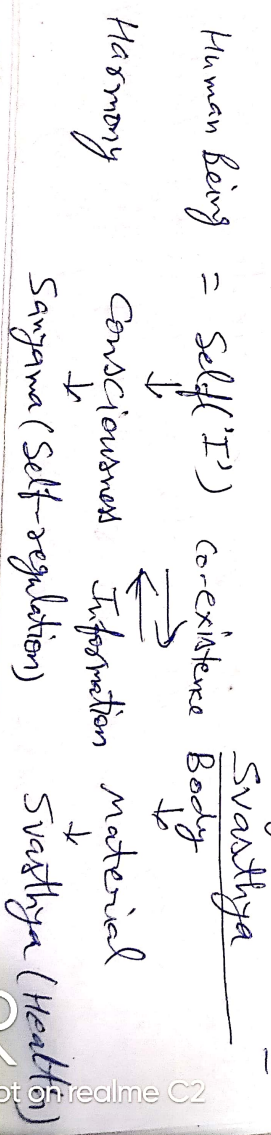 Svasthya
Human Being = Self('I') Co-existence Body
↓ ⇌ ↓
Harmony Consciousness Information Material
↓ ↓
Sanyama (Self-regulation) Svasthya (Health)
ot on realme C2